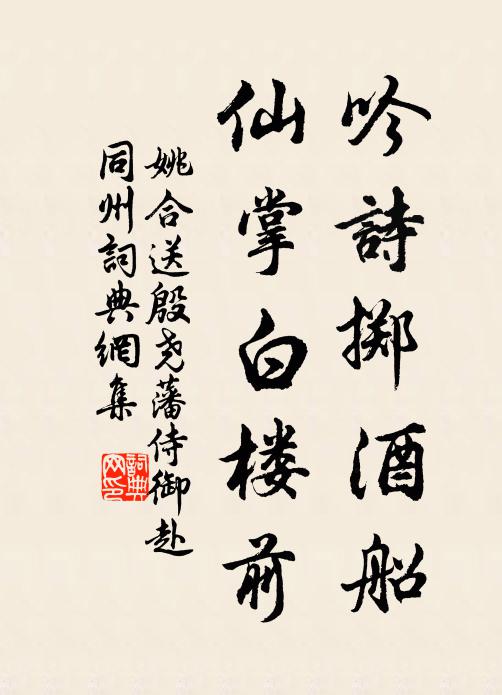 吟詩掷酒船
仙掌白楼前
姚合送殷尧藩侍御赴
同州詞典網集
詞典
网印